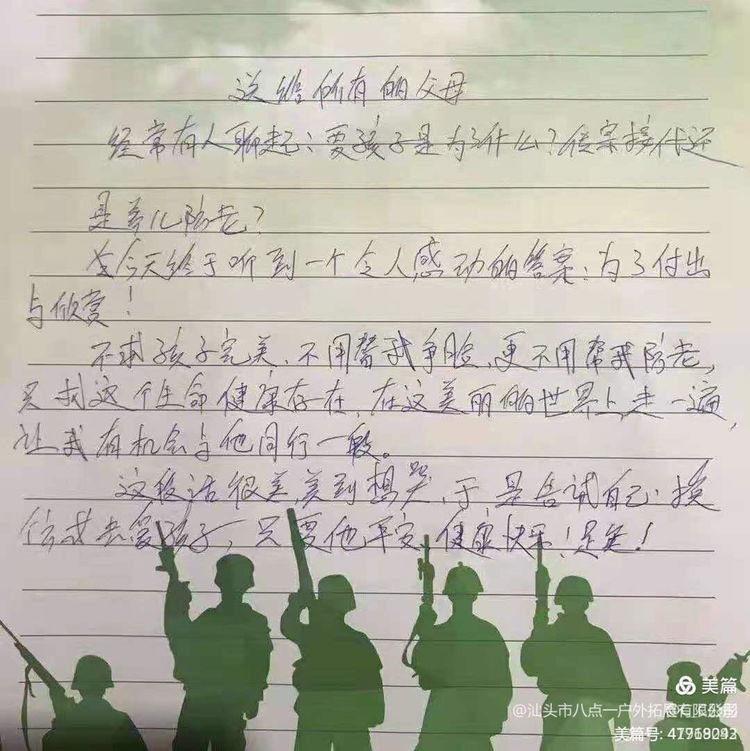 送给所有的父母
经常有人聊起:要孩子是为了什么?传宗接代还
是养儿防老?
今天终于听到一个令人感动的答案:为了付出
与欣赏!
不求孩子完美、不用替我争脸、更不用帮我防老,
只求这个生命健康存在,在这美丽的世界上走一遍,
让我有机会与他同行一段。
这段话很美,美到想哭,于是告诫自己:换
位或去爱孩子,只要他平安、健康、快乐!足矣!
美篇
@汕头市八点一户外拓展有限
美篇号: